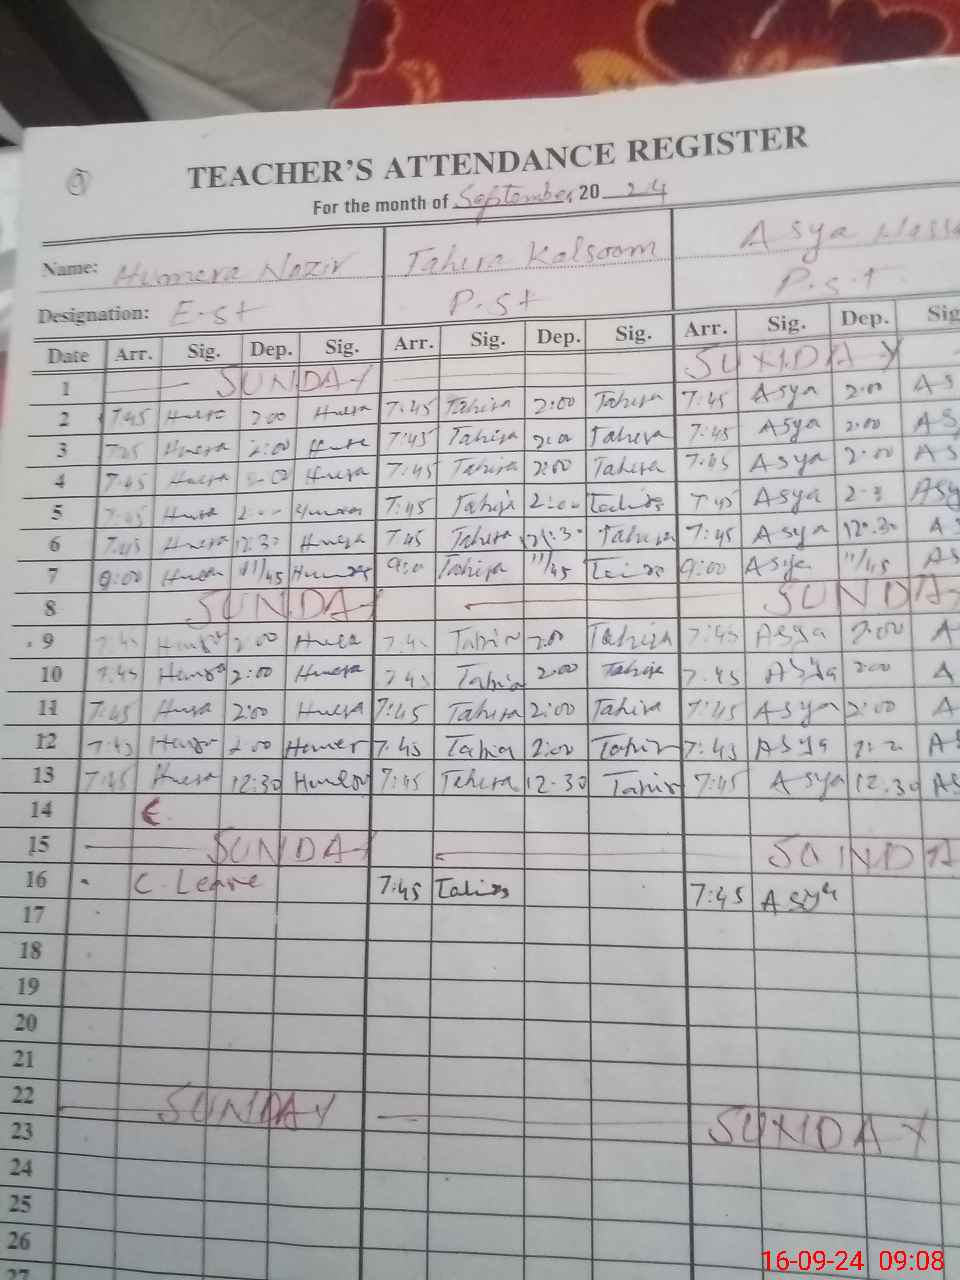 TEACHER'S ATTENDANCE REGISTER
For the month of September 20 24
Name: Humera Nazir Tahira Kalsoom Asya
Designation: E-st P.St P.S.T.
Date Arr. Sig. Dep. Sig. Arr. Sig. Dep. Sig. Arr. Sig. Dep. Sig
1 SUNDAY SUNDAY
2 7:45 2:00 7:45 Tahira 2:00 Tahira 7:45 Asya 2:00 AS
3 2:00 7:45 Tahira Tahira 7:45 Asya 2:00 AS
4 7:45 7:45 Tahira 2:00 Tahira 7:45 Asya 2:00 AS
5 7:45 7:45 Tahira 2:00 7:45 Asya ASy
6 7:45 12:30 7:45 Tahira Tahira 7:45 Asya 12:30 AS
7 9:00 11/45 Tahira 11/45 9:00 Asya 11/45 AS
8 SUNDAY SUNDA
9 7:45 2:00 7:45 Tahira 2:00 Tahira 7:45 Asya 2:00 A
10 7:45 2:00 7:45 Tahira 2:00 Tahira 7:45 Asya 2:00 A
11 7:45 2:00 7:45 Tahira 2:00 Tahira 7:45 Asya 2:00 A
12 7:45 2:00 Humer 7:45 Tahira 2:00 Tahir 7:45 Asya AS
13 7:45 12:30 7:45 Tahira 12.30 Tahir 7:45 Asya 12.30 AS
14
15 SUNDAY SUNDA
16 C. Leave 7:45 7:45 Asya
17
18
19
20
21
22 SUNDAY SUNDAY
23
24
25
26
27
16-09-24 09:08